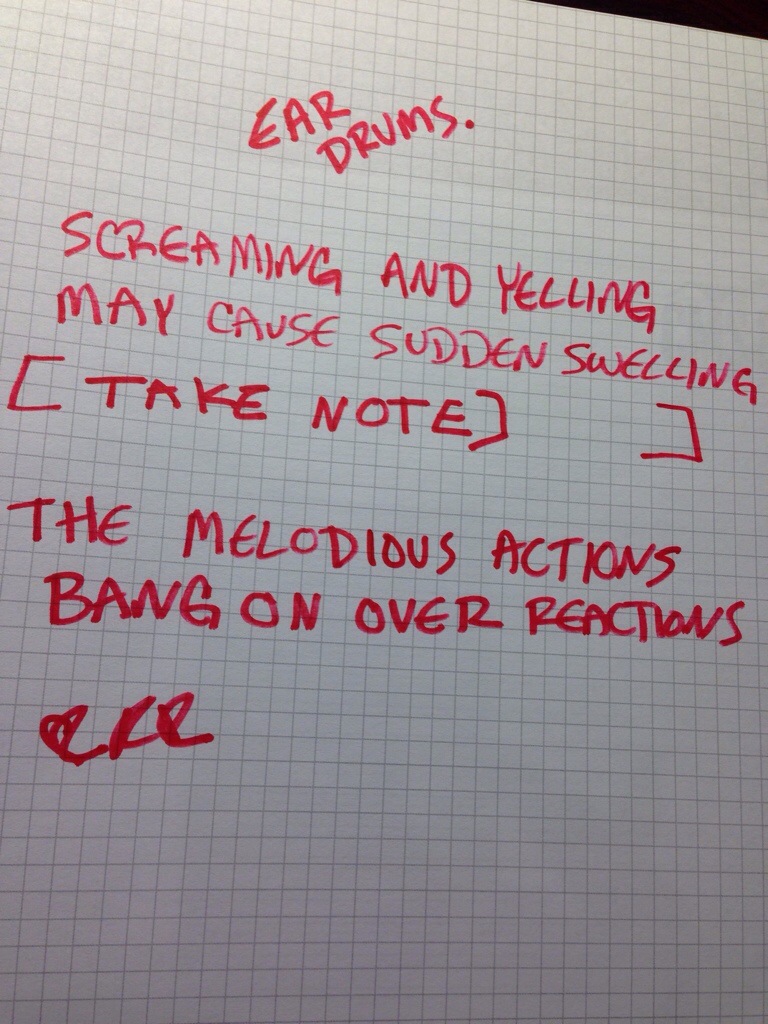 EAR
DRUMS.
SCREAMING AND YELLING
MAY CAUSE SUDDEN SWELLING
[TAKE NOTE] ]
THE MELODIOUS ACTIONS
BANG ON OVER REACTIONS